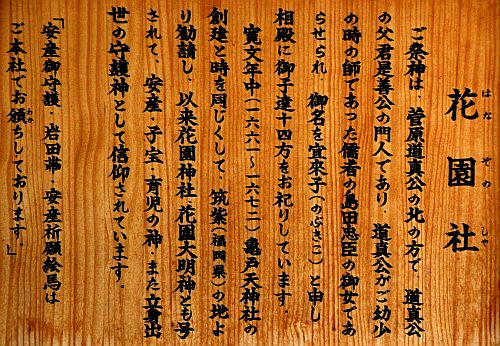 花園社
はなぞのしゃ
ご祭神は、菅原道真公の北の方で、道真公
の父君是善公の門人であり、道真公がご幼少
の時の師であった儒者の島田忠臣の御女であ
らせられ 御名を宣来子(のぶきこ)と申し
相殿に御子達十四方をお祀りしています。
寛文年中(一六六一〜一六七二)亀戸天神社の
創建と時を同じくして、筑紫(福岡県)の地よ
り勧請し、以来花園神社、花園大明神とも号
されて、安産・子宝・育児の神・また立身出
世の守護神として信仰されています。
「安産御守護・岩田帯・安産祈願絵馬は
ご本社でお頒ちしております。」
わか